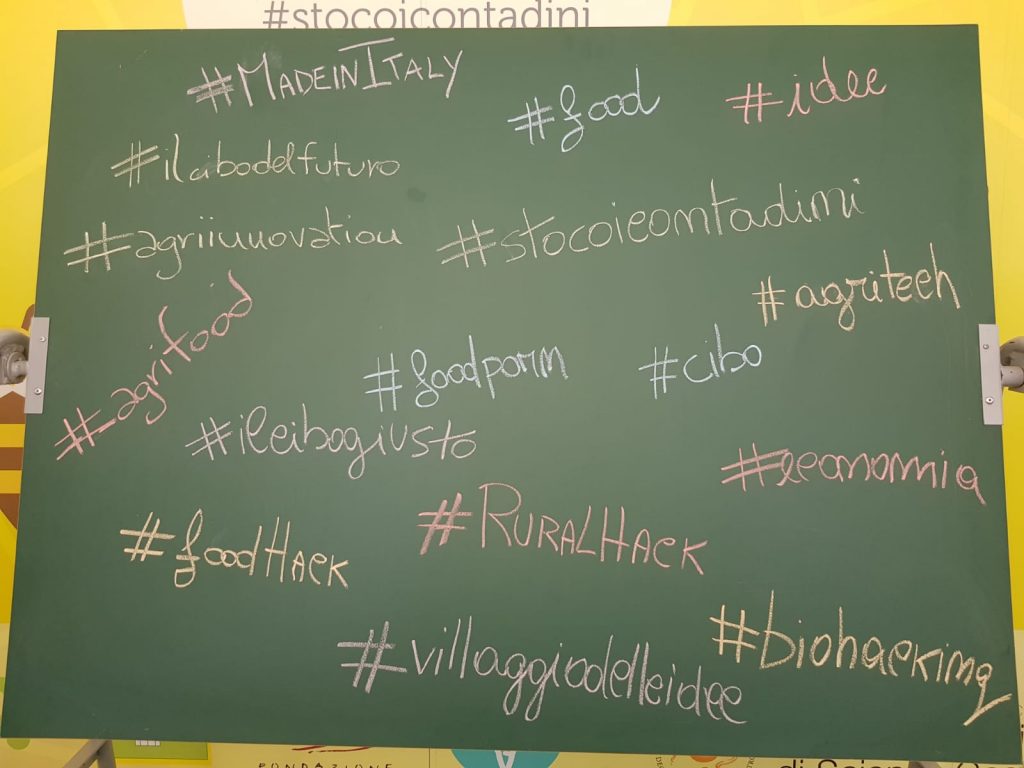 #stocoicontadini
#MADEINITALY
#food
#idee
#ilcibodelfuturo
#agriinnovation
#stocoicontadini
#agritech
#agrifood
#foodporn
#cibo
#ilcibogiusto
#economia
#foodHACK
#RURALHACK
#villaggiodelleidee
#biohacking
FONDAZIONE